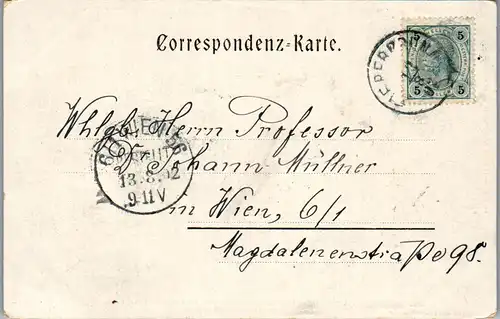 Correspondenz-Karte.
5 5
Whlgb. Herrn Professor
Dr. Johann Müllner
in Wien, 6/1
Magdalenenstraße 98.
13.8.02
9-11V